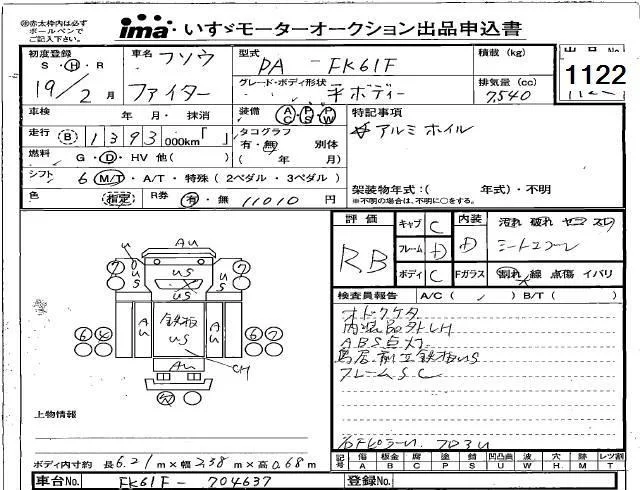 ㊟赤太枠内は必ず
ボールペンで
ご記入下さい。
ima いすゞモーターオークション出品申込書
初度登録
S・H・R
19/2月
車名 フソウ
ファイター
型式
PA - FK61F
グレード・ボディ形状
平ボディー
積載 (kg)
排気量 (cc)
7,540
出品No.
1122
車検 年 月・抹消
装備 AC PS PW
特記事項
☆アルミホイル
走行 B 1393000km「 」
タコグラフ
有・無 別体
( 年 月)
燃料 G・D・HV 他( )
シフト 6 M/T・A/T・特殊(2ペダル・3ペダル)
架装物年式:( 年式)・不明
※不明の場合は、不明に○をする。
色 指定 R券 有・無 11010 円
評価
RB
キャブ C
フレーム D
ボディ C
内装 D
Fガラス
汚れ 破れ
割れ 線 点傷 イバリ
検査員報告 A/C ( ✓ ) B/T ( )
内装品外しLH
ABS点灯
フレームSC
Au
U
US
7
7
US
US
US
Au
鉄板
US
Au
6
6
7
Au
CH
上物情報
ボディ内寸約 長6.21m×幅2.38m×高0.68m
記号 傷A 板キンB 腐C 塗P 錆S 凹凸曲U 波W 穴H 跡M レツ割T
車台No. FK61F-704637
登録No.